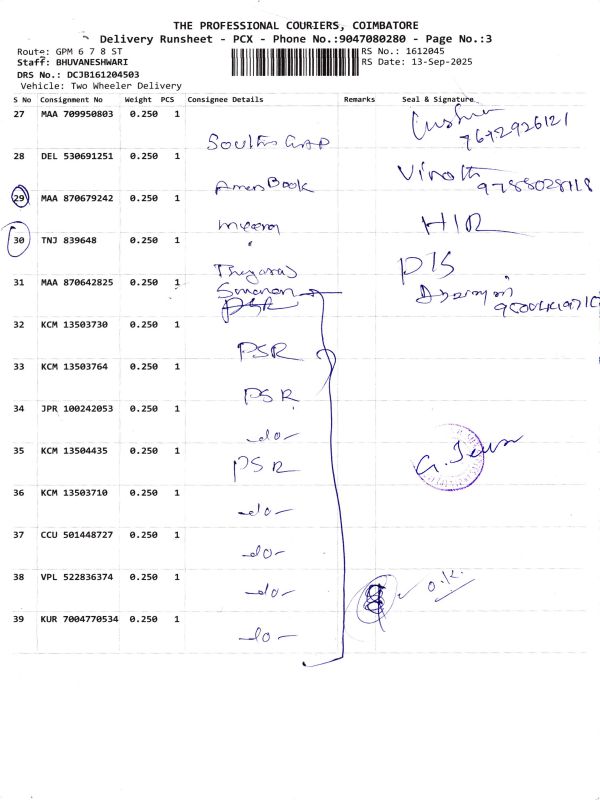 THE PROFESSIONAL COURIERS, COIMBATORE
Delivery Runsheet - PCX - Phone No.:9047080280 - Page No.:3
Route: GPM 6 7 8 ST
RS No.: 1612045
Staff: BHUVANESHWARI
RS Date: 13-Sep-2025
DRS No.: DCJB161204503
Vehicle: Two Wheeler Delivery
S No Consignment No Weight PCS Consignee Details Remarks Seal & Signature
27 MAA 709950803 0.250 1
South Gap
28 DEL 530691251 0.250 1
Book
Vinoth
29 MAA 870679242 0.250 1
meera
HIR
30 TNJ 839648 0.250 1
31 MAA 870642825 0.250 1
PSR
32 KCM 13503730 0.250 1
PSR
33 KCM 13503764 0.250 1
PSR
34 JPR 100242053 0.250 1
-do-
35 KCM 13504435 0.250 1
PSR
36 KCM 13503710 0.250 1
-do-
37 CCU 501448727 0.250 1
-do-
38 VPL 522836374 0.250 1
-do-
O.K.
39 KUR 7004770534 0.250 1
-do-